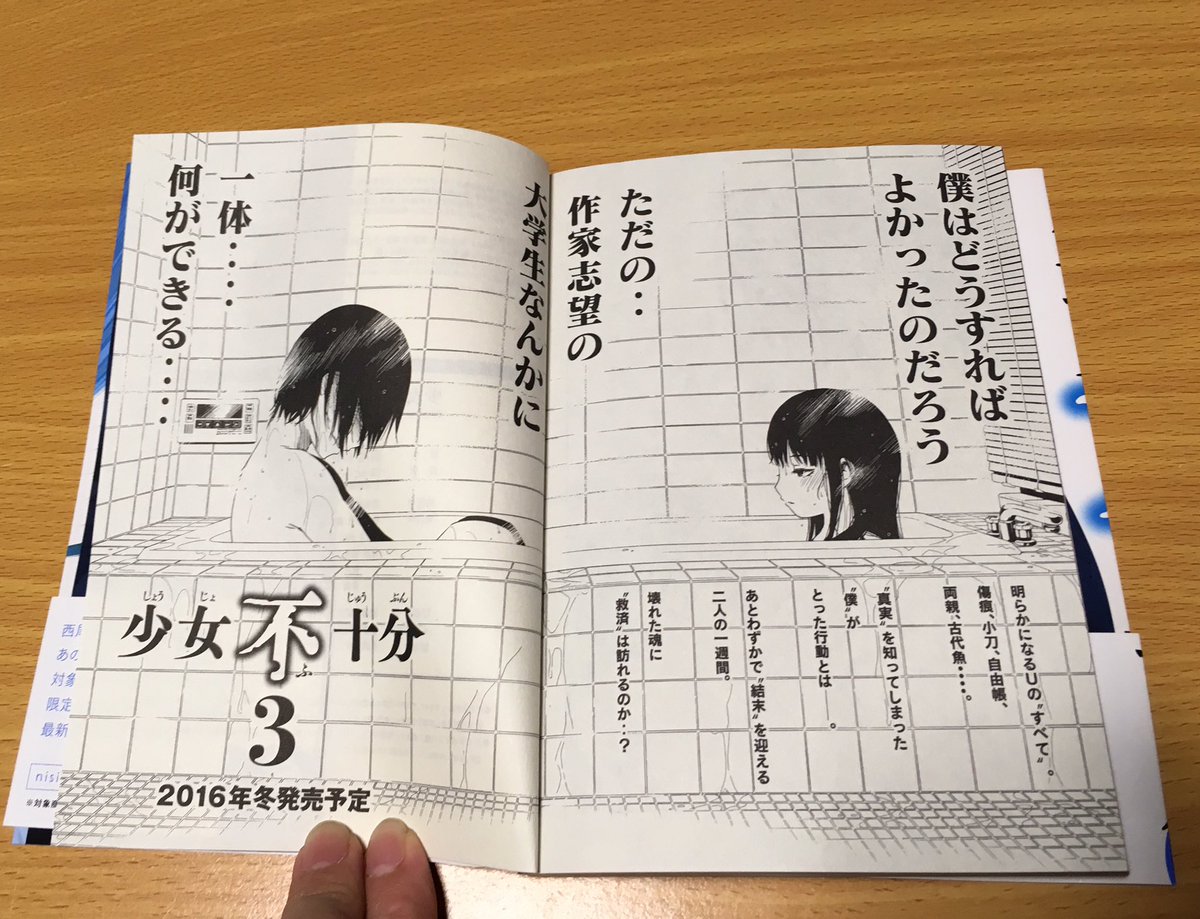 僕はどうすれば
よかったのだろう
ただの‥
作家志望の
大学生なんかに
一体‥‥
何ができる‥‥‥
明らかになるUの〝すべて〟。
傷痕、小刀、自由帳、
両親、古代魚‥‥‥。
〝真実〟を知ってしまった
〝僕〟が
とった行動とは――。
あとわずかで〝結末〟を迎える
二人の一週間。
壊れた魂に
〝救済〟は訪れるのか‥?
しょう じょ ふ じゅう ぶん
少女不十分
3
2016年冬発売予定
西尾
あの
対象
限定
最新
nisi
※対象商